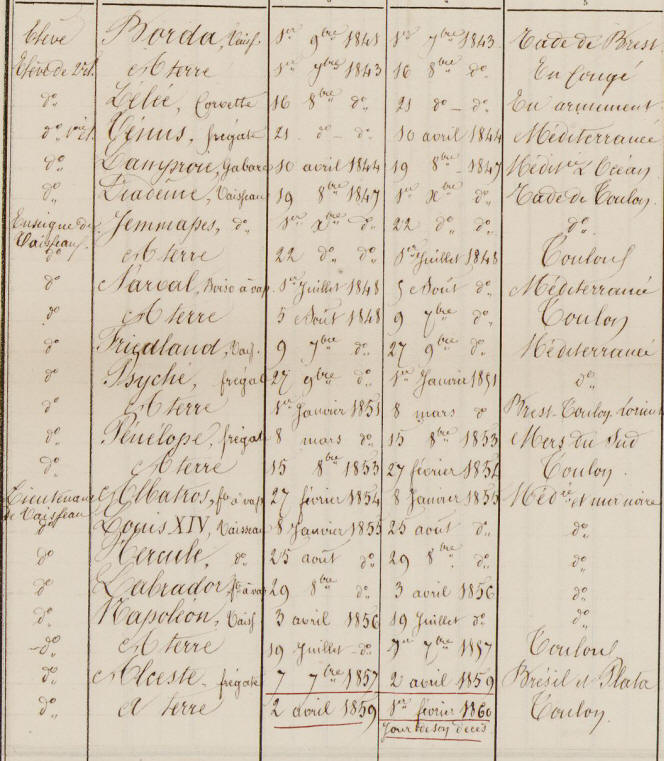 Elève Borda, Vaiss. 1er 9bre 1841 1er 7bre 1843. Rade de Brest
Elève de 2e cl. A terre 1er 7bre 1843 16 8bre do. En congé
do. Zélée, Corvette 16 8bre do. 21 do - do. En armement
do. 1ère cl. Vénus, frégate 21 do - do. 10 avril 1844 Méditerranée
do. Lamproie, Gabare 10 avril 1844 19 8bre 1847 Médit. & Océan
do. Diadème, Vaisseau 19 8bre 1847 1er Xbre do. Rade de Toulon.
Enseigne de Jemmapes, do. 1er Xbre do. 22 do. do. do.
Vaisseau.
do. A terre 22 do. do. 1er Juillet 1848 Toulon
do Narval, à vap. 1er Juillet 1848 5 Août do. Méditerranée
do A terre 5 Août 1848 9 7bre do. Toulon
do Friedland, Vais. 9 7bre do. 27 9bre do. Méditerranée
do Psyché, frégate 27 9bre do. 1er Janvier 1851 do.
do A terre 1er Janvier 1851 8 mars do Brest-Toulon-Lorient
do. Pénélope, frégate 8 mars do. 15 8bre 1853 Mers du Sud
do. A terre 15 8bre 1853 27 février 1854 Toulon.
Lieutenant Albatros, fte à vap 27 février 1854 8 Janvier 1855 Médée et mer noire
de Vaisseau
do Louis XIV, Vaisseau 8 Janvier 1855 25 août do. do.
do Hercule, do. 25 août do. 29 8bre do. do.
do Labrador, fte à vap 29 8bre do. 3 avril 1856 do.
do. Napoléon, Vaiss 3 avril 1856 19 Juillet do. do.
- do A terre 19 Juillet - do. 7bre 1857 Toulon
do. Alceste - frégate 7 7bre 1857 2 avril 1859 Brésil et Plata
do. A terre 2 avril 1859 1er février 1860 Toulon.
Jour de son décès